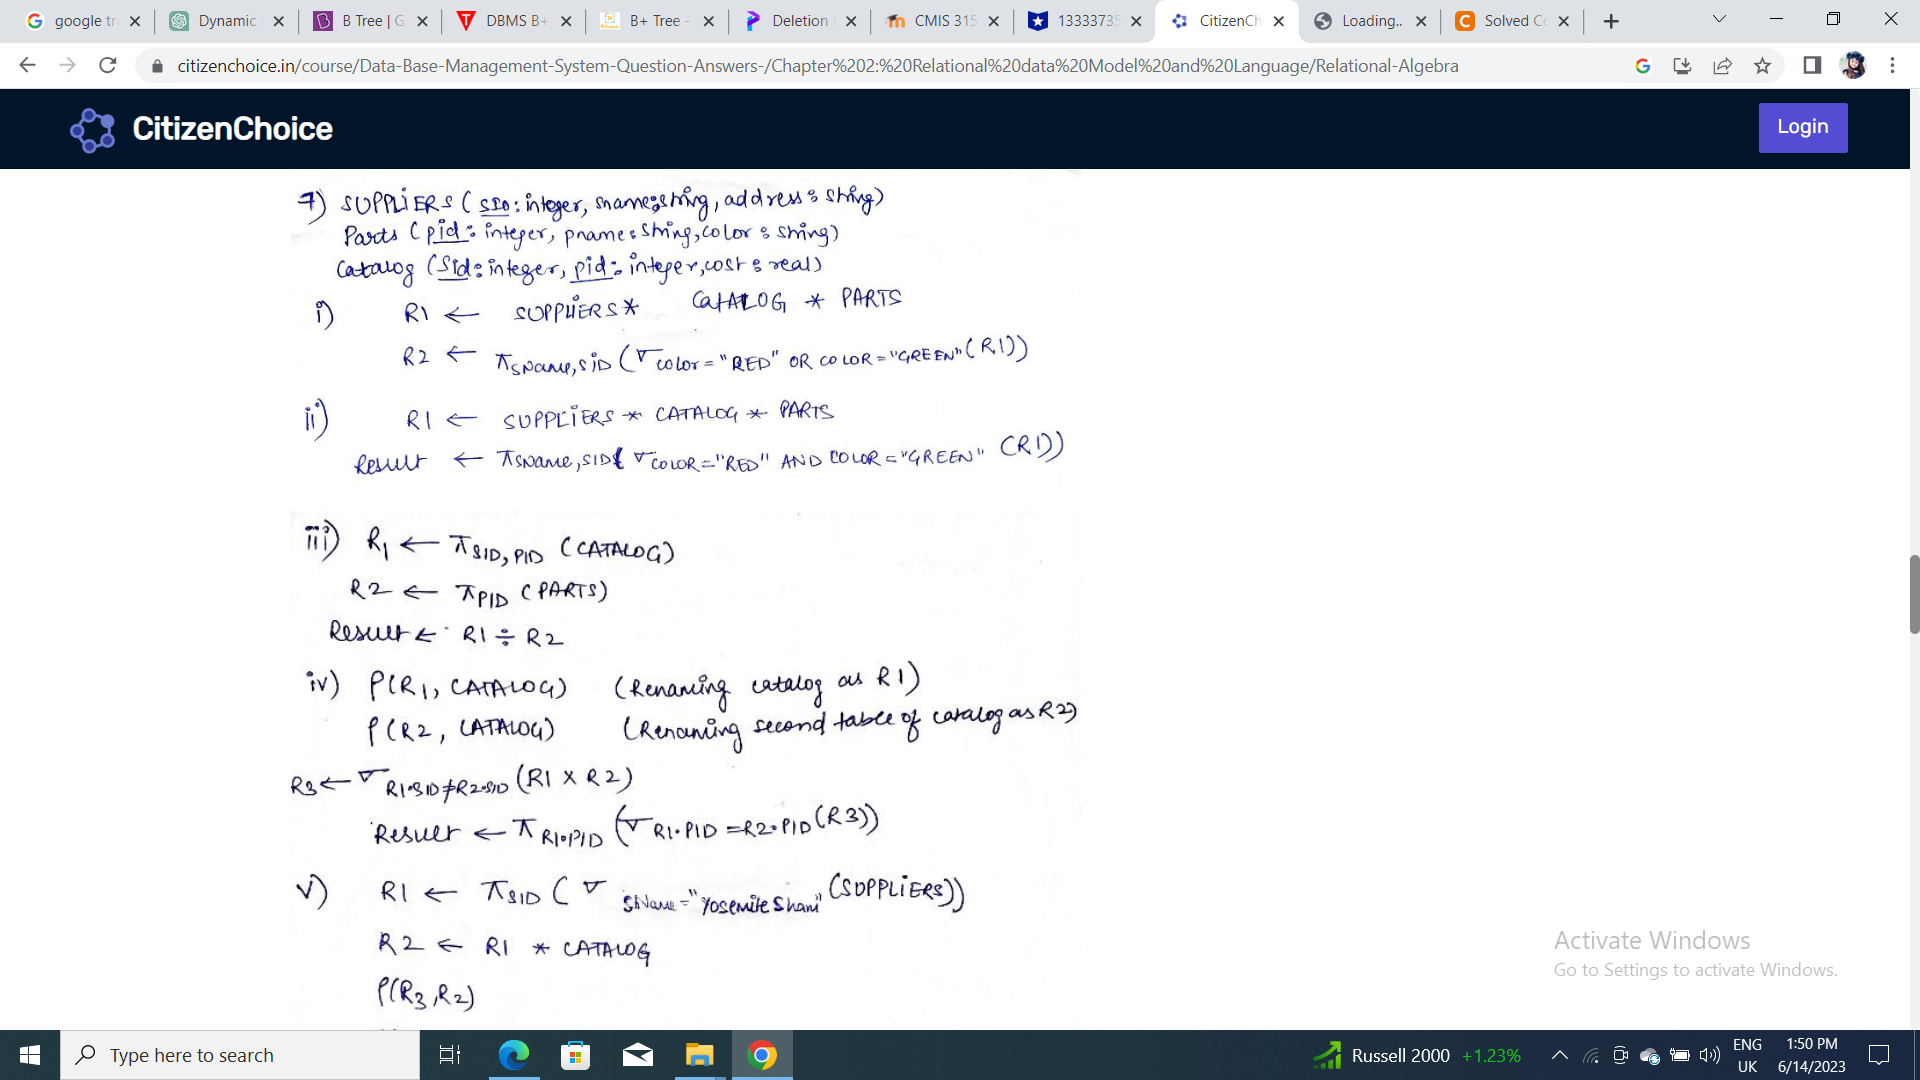 google tr
Dynamic
B Tree | G
DBMS B+
B+ Tree -
Deletion
CMIS 315
13333735
CitizenCh
Loading..
Solved C
citizenchoice.in/course/Data-Base-Management-System-Question-Answers-/Chapter%202:%20Relational%20data%20Model%20and%20Language/Relational-Algebra
CitizenChoice
Login
7) SUPPLIERS ( SID : integer, sname:string, address : string)
Parts ( pid : integer, pname : string, color : string)
Catalog (Sid : integer, pid : integer, cost : real)
i) R1 ← SUPPLIERS * CATALOG * PARTS
R2 ← π SName, SID ( σ color = "RED" OR COLOR = "GREEN" (R1))
ii) R1 ← SUPPLIERS * CATALOG * PARTS
Result ← π SName, SID ( σ COLOR = "RED" AND COLOR = "GREEN" (R1))
iii) R1 ← π SID, PID (CATALOG)
R2 ← π PID (PARTS)
Result ← R1 ÷ R2
iv) ρ(R1, CATALOG) (Renaming catalog as R1)
ρ(R2, CATALOG) (Renaming second table of catalog as R2)
R3 ← σ R1.SID ≠ R2.SID (R1 X R2)
Result ← π R1.PID (σ R1.PID = R2.PID (R3))
v) R1 ← π SID ( σ SName = "Yosemite Sham" (SUPPLIERS))
R2 ← R1 * CATALOG
ρ(R3, R2)
Activate Windows
Go to Settings to activate Windows.
Type here to search
Russell 2000 +1.23%
ENG
UK
1:50 PM
6/14/2023